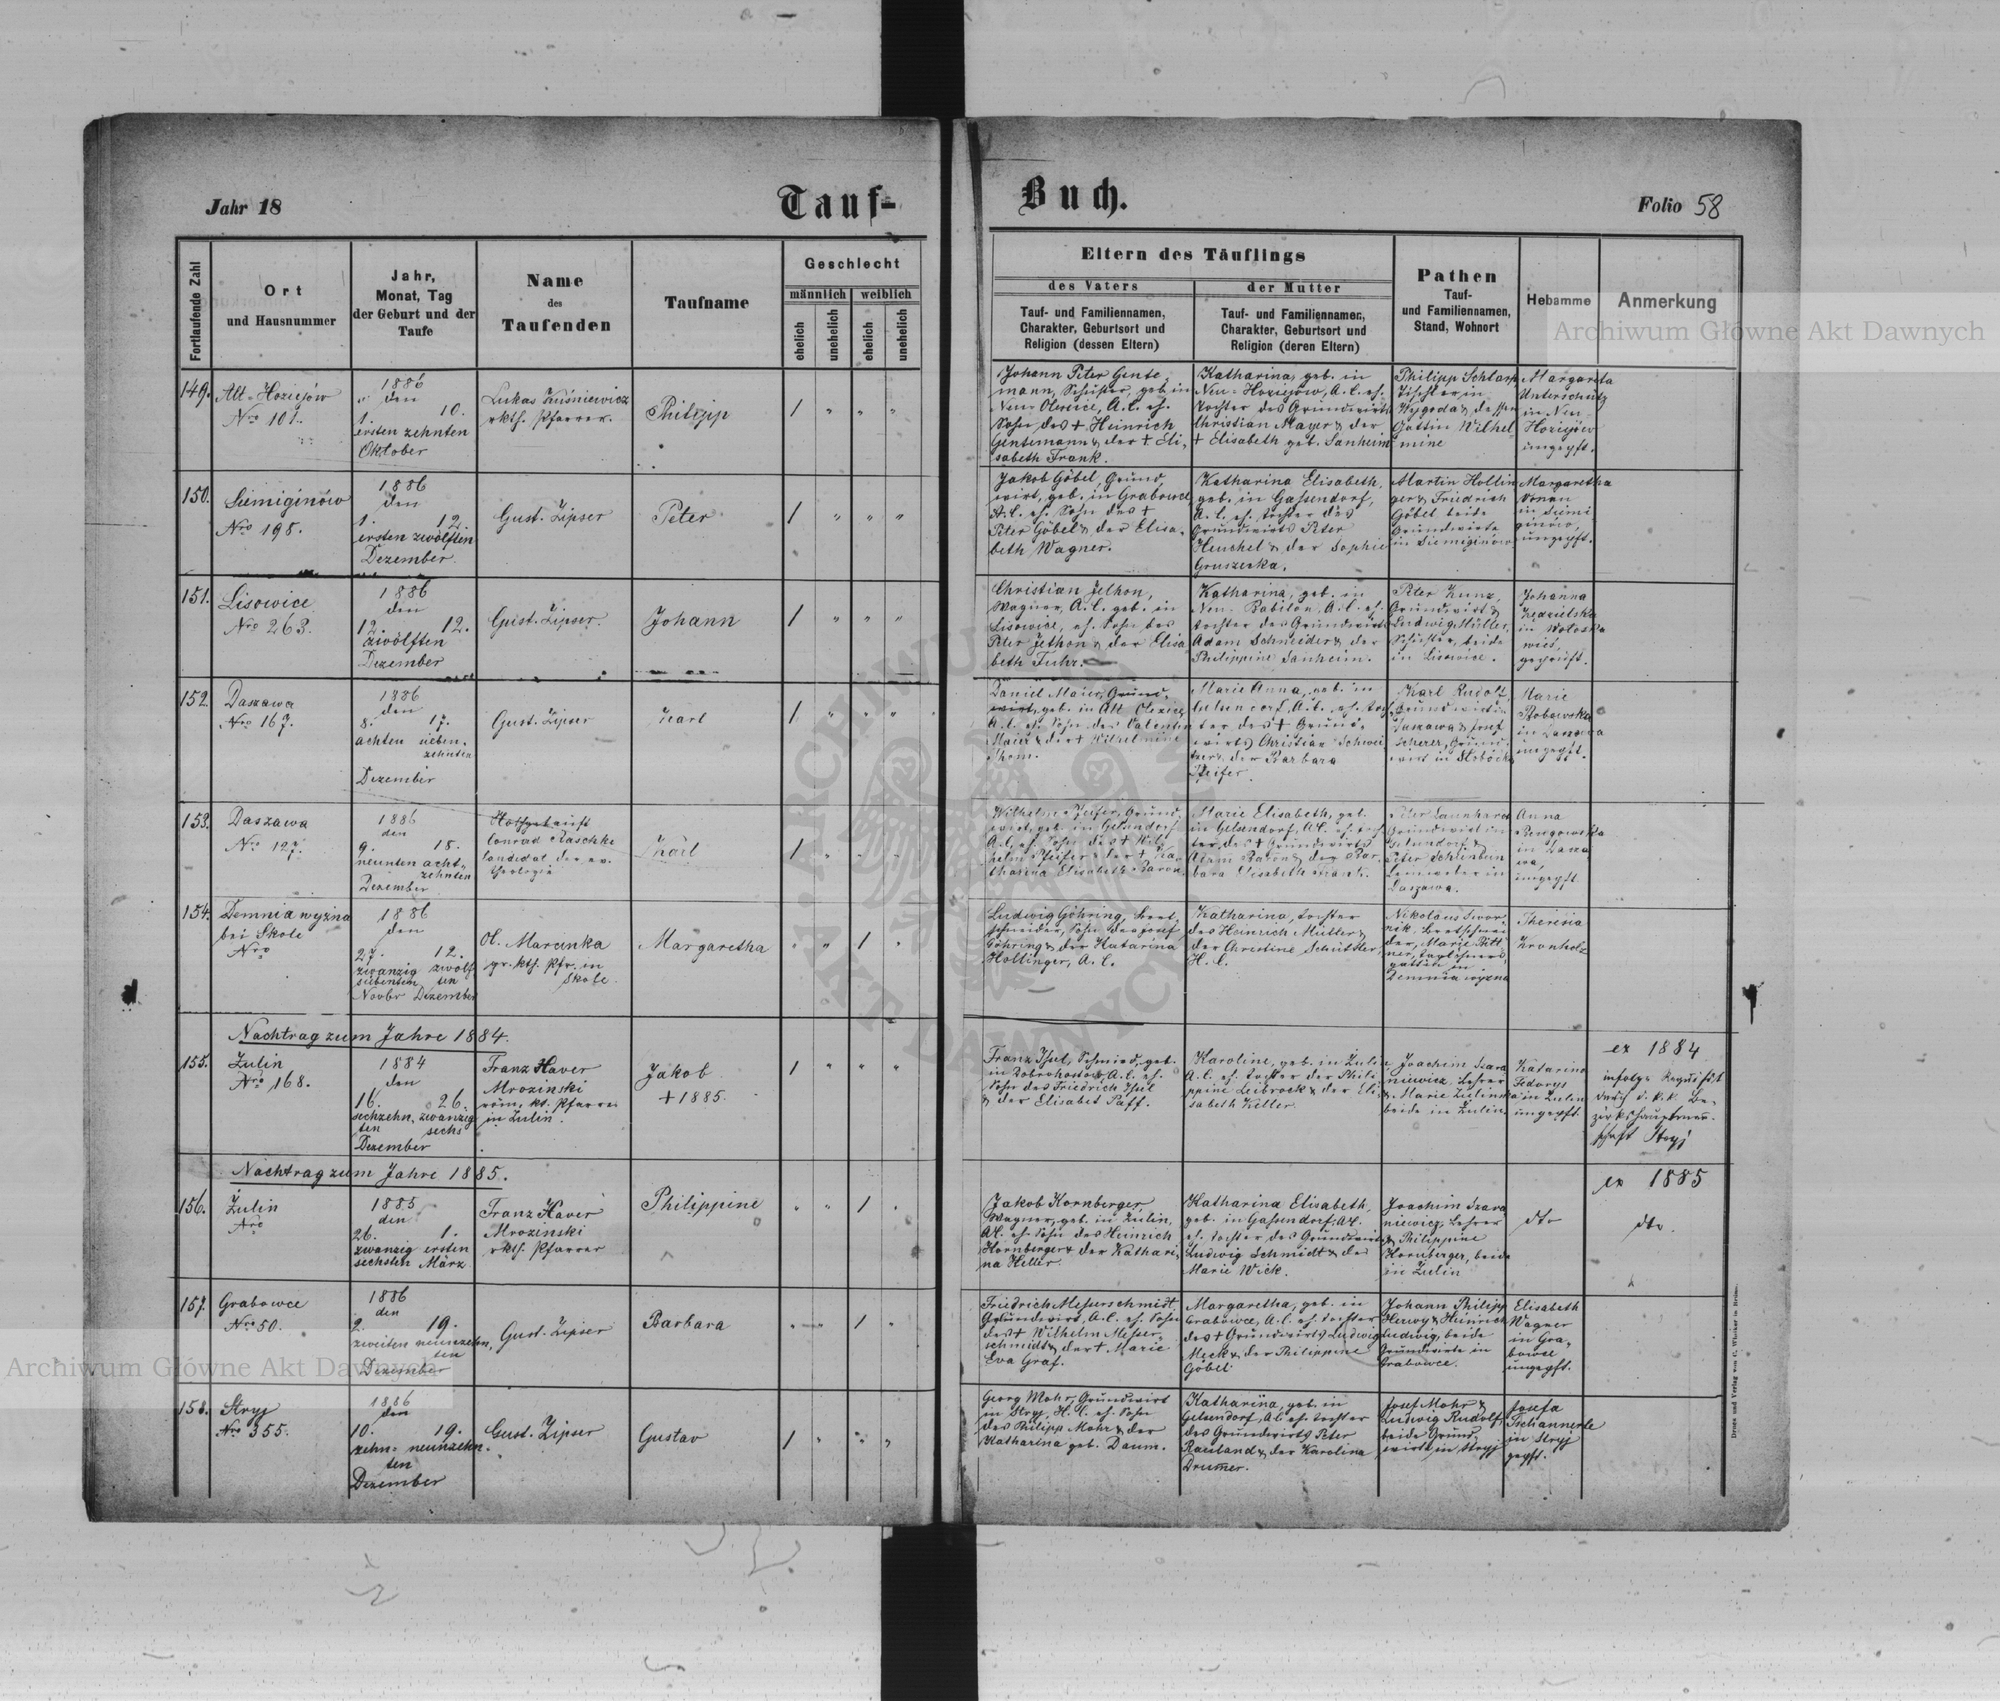 Jahr 18
Tauf-
Buch.
Folio 58
Fortlaufende Zahl
Ort
und Hausnummer
Jahr,
Monat, Tag
der Geburt und der
Taufe
Name
des
Taufenden
Taufname
Geschlecht
männlich
weiblich
ehelich
unehelich
ehelich
unehelich
Eltern des Täuflings
des Vaters
Tauf- und Familiennamen,
Charakter, Geburtsort und
Religion (dessen Eltern)
der Mutter
Tauf- und Familiennamen,
Charakter, Geburtsort und
Religion (deren Eltern)
Pathen
Tauf-
und Familiennamen,
Stand, Wohnort
Hebamme
Anmerkung
149.
Alt-Hoziejów
Nro 101.
1886
den
1. 10.
ersten zehnten
Oktober
Lukas Kuśniewicz
rkth. Pfarrer.
Philipp
1 " " "
Johann Peter Gense
mann, Schuster, geb. in
Neu-Oleksice, A.C. eh.
Sohn des + Heinrich
Gensemann & der + Eli-
sabeth Frank.
Katharina, geb. in
Neu-Hoziejow, A.C. eh.
Tochter des Grundwirts
Christian Mayer & der
+ Elisabeth geb. Sanheim
Philipp Schlarp
Tischler in
Wygoda & dessen
Gattin Wilhel
mine
Margareta
Unterschütz
in Neu-
Hoziejów
ungepft.
150.
Siemiginów
Nro 198.
1886
den
1. 12.
ersten zwölften
Dezember.
Gust. Zipser
Peter
1 " " "
Jakob Göbel, Grund
wirt, geb. in Grabowce
A.C. eh. Sohn des +
Peter Göbel & der Elisa-
beth Wagner.
Katharina Elisabeth,
geb. in Gassendorf,
A.C. eh. Tochter des
Grundwirts Peter
Heuchel & der Sophie
Gruszecka.
Martin Hollin
ger & Friedrich
Göbel beide
Grundwirte
in Siemiginów
Margaretha
in Siemi
ginów,
ungepft.
151.
Lisowice
Nro 263.
1886
den
12. 12.
zwölften
Dezember
Gust. Zipser
Johann
1 " " "
Christian Jethon,
Wagner, A.C. geb. in
Lisowice, eh. Sohn des
Peter Jethon & der Elisa
beth Fuhr.
Katharina, geb. in
Neu-Babilon, A.C. eh.
Tochter des Grundwirts
Adam Schneider & der
Philippine Sanheim.
Peter Kunz,
Grundwirt &
Ludwig Müller,
Schuster, beide
in Lisowice.
Johanna
in Woloska
wieś,
geprüft.
152.
Daszawa
Nro 167.
1886
den
8. 17.
achten sieben-
zehnten
Dezember
Gust. Zipser
Karl
1 " " "
Daniel Maier, Grund-
wirt, geb. in Alt Olexice
A.C. eh. Sohn des Valentin
Maier & der + Wilhelmine
Thom.
Marie Anna, geb. in
Gelsendorf, A.C. eh. Toch
ter des + Grund-
wirts Christian Schwei
tzer & der Barbara
Pfeifer.
Karl Rudolf,
Grundwirt in
Daszawa & Josef
Scherer, Grund-
wirt in
Marie
Bobowska
in Daszawa
ungepft.
153.
Daszawa
Nro 127.
1886
den
9. 18.
neunten acht-
zehnten
Dezember
Nothgetauft
Conrad Raschke
Candidat der ev.
Theologie
Karl
1 " " "
Wilhelm Pfeifer, Grund-
wirt, geb. in Gelsendorf
A.C. eh. Sohn des + Wil-
helm Pfeifer & der + Ka-
tharina Elisabeth Baron.
Marie Elisabeth, geb.
in Gelsendorf, A.C. eh. Toch
ter des + Grundwirts
Adam Baron & der Bar-
bara Elisabeth Mank.
Peter Launhardt
Grundwirt in
Gelsendorf &
Peter Schienbun
Leinweber in
Daszawa.
Anna
in Dasza
wa,
ungepft
154.
Demnia wyżna
bei Skole
Nro
1886
den
27. 12.
zwanzig zwölf
siebenten ten
Novbr Dezember
Ol. Marcinka
gr. kth. Pfr. in
Skole.
Margaretha
" " 1 "
Ludwig Göhring, Bret-
schneider, Sohn des Josef
Göhring & der Katarina
Hollinger, A.C.
Katharina, Tochter
des Heinrich Müller &
der Christine Schüttler,
H.C.
Nikolaus Swor-
nik Bretschnei
der, Marie Bitt
ner, Taglöhners-
gattin in
Demnia wyżna
Theresia
Kronholz
Nachtrag zum Jahre 1884.
155.
Zulin
Nro 168.
1884
den
16. 26.
sechzehn- zwanzig
ten sechs
Dezember
Franz Xaver
Mrozinski
röm. kt. Pfarrer
in Zulin.
Jakob
+ 1885.
1 " " "
Franz Isel, Schmied, geb.
in Dobrohostow, A.C. eh.
Sohn des Friedrich Isel
& der Elisabet Paff.
Karoline, geb. in Zulin
A.C. eh. Tochter der Phili
ppine Leibrock & der Eli
sabeth Keller.
Joachim Szara
niewicz, Lehrer
& Marie Zulinska
beide in Zulin.
Katarina
Fedorys
in Zulin
ungepft.
ex 1884
infolge Requisit
durch d. k.k. Be-
zirkshauptman-
schaft Stryj
Nachtrag zum Jahre 1885.
ex 1885
156.
Zulin
Nro
1885
den
26. 1.
zwanzig ersten
sechsten März
Franz Xaver
Mrozinski
rkth. Pfarrer
Philippine
" " 1 "
Jakob Kornberger,
Wagner, geb. in Zulin,
A.C. eh. Sohn des Heinrich
Hornberger & der Kathari
na Heller.
Katharina Elisabeth,
geb. in Gassendorf, A.C.
eh. Tochter des Grundwirts
Ludwig Schmidt & der
Marie Wick.
Joachim Szara
niewicz, Lehrer
& Philippine
Hornberger, beide
in Zulin
dto
dto.
157.
Grabowce
Nro 50.
1886
den
2. 19.
zweiten neunzehn-
ten
Dezember
Gust. Zipser
Barbara
" " 1 "
Friedrich Messerschmidt,
Grundwirt, A.C. eh. Sohn
des + Wilhelm Messer-
schmidt & der + Marie
Eva Graf.
Margaretha, geb. in
Grabowce, A.C. eh. Tochter
des + Grundwirts Ludwig
Meck & der Philippine
Göbel
Johann Philipp
Herwy & Heinrich
Ludwig, beide
Grundwirte in
Grabowce.
Elisabeth
Wagner
in Gra-
bowce
ungepft.
158.
Stryj
Nro 355.
1886
den
10. 19.
zehn- neunzehn-
ten
Dezember
Gust. Zipser
Gustav
1 " " "
Georg Mohr, Grundwirt
in Stryj, H.C. eh. Sohn
des Philipp Mohr & der
Katharina geb. Daum.
Katharina, geb. in
Gelsendorf, A.C. eh. Tochter
des Grundwirts Peter
Rauland & der Karolina
Drummer.
Josef Mohr &
Ludwig Rudolf,
beide Grund-
wirte in Stryj
Josefa
Tschannerle
in Stryj
gepft.
Archiwum Główne Akt Dawnych
Archiwum Główne Akt Dawnych
ARCHIWUM
AKT DAWNYCH